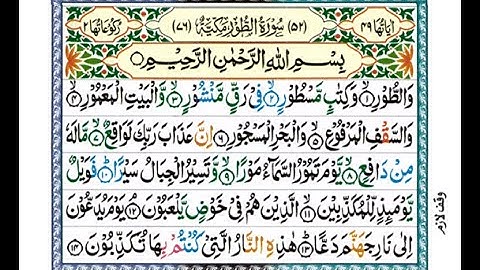 اٰیَاتُهَا ٤٩ (٥٢) سُوْرَةُ الطُّوْرِ مَكِّیَّةٌ (٧٦) رُكُوْعَاتُهَا ٢
بِسْمِ اللّٰهِ الرَّحْمٰنِ الرَّحِیْمِ
وَالطُّوْرِ ۙ﴿١﴾ وَكِتٰبٍ مَّسْطُوْرٍ ۙ﴿٢﴾ فِیْ رَقٍّ مَّنْشُوْرٍ ۙ﴿٣﴾ وَّالْبَیْتِ الْمَعْمُوْرِ ۙ﴿٤﴾
وَالسَّقْفِ الْمَرْفُوْعِ ۙ﴿٥﴾ وَالْبَحْرِ الْمَسْجُوْرِ ۙ﴿٦﴾ اِنَّ عَذَابَ رَبِّكَ لَوَاقِعٌ ۙ﴿٧﴾ مَّا لَهٗ
مِنْ دَافِعٍ ۙ﴿٨﴾ یَّوْمَ تَمُوْرُ السَّمَآءُ مَوْرًا ۙ﴿٩﴾ وَّتَسِیْرُ الْجِبَالُ سَیْرًا ؕ﴿١٠﴾ فَوَیْلٌ
یَّوْمَىِٕذٍ لِّلْمُكَذِّبِیْنَ ۙ﴿١١﴾ الَّذِیْنَ هُمْ فِیْ خَوْضٍ یَّلْعَبُوْنَ ۘ﴿١٢﴾ یَوْمَ یُدَعُّوْنَ
اِلٰی نَارِ جَهَنَّمَ دَعًّا ؕ﴿١٣﴾ هٰذِهِ النَّارُ الَّتِیْ كُنْتُمْ بِهَا تُكَذِّبُوْنَ ﴿١٤﴾
وقف لازم